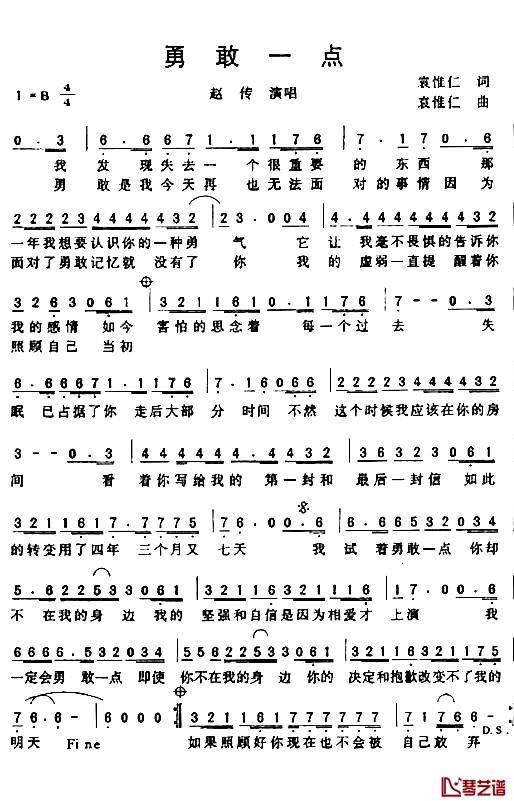 勇敢一点
1=B 4/4 赵传 演唱 袁惟仁 词
袁惟仁 曲
0.3 6.6671.1176 7.170.6
我 发现失去一个很重要的东西那
勇敢是我今天再也无法面对的事情因为
2222344444432 23.004 4.44444432
一年我想要认识你的一种勇气 它让我毫不畏惧的告诉你
面对了勇敢记忆就没有了你 我的虚弱一直提醒着你
32263061 3211610.1176 7--0.3
我的感情如今害怕的思念着 每一个过去 失
照顾自己 当初
6.66671.1176 7.16066 2222344444432
眠已占据了你走后大部分时间不然这个时候我应该在你的房
3--0.3 44444.4432 36323061
间 看着你写给我的第一封和最后一封信如此
3211617.7775 76.00.6 6.665332034
的转变用了四年三个月又七天 我试着勇敢一点你却
5.6622533061 321161321116 17.00.6
不在我的身边我的坚强和自信是因为相爱才上演 我
6666.5332034 5.6622533061 321161321116
一定会勇敢一点即使你不在我的身边你的决定和抱歉改变不了我的
76.6- 6000 3211613211176 1766- D.S.
明天 Fine 如果照顾好你现在也不会被自己放弃
琴艺谱